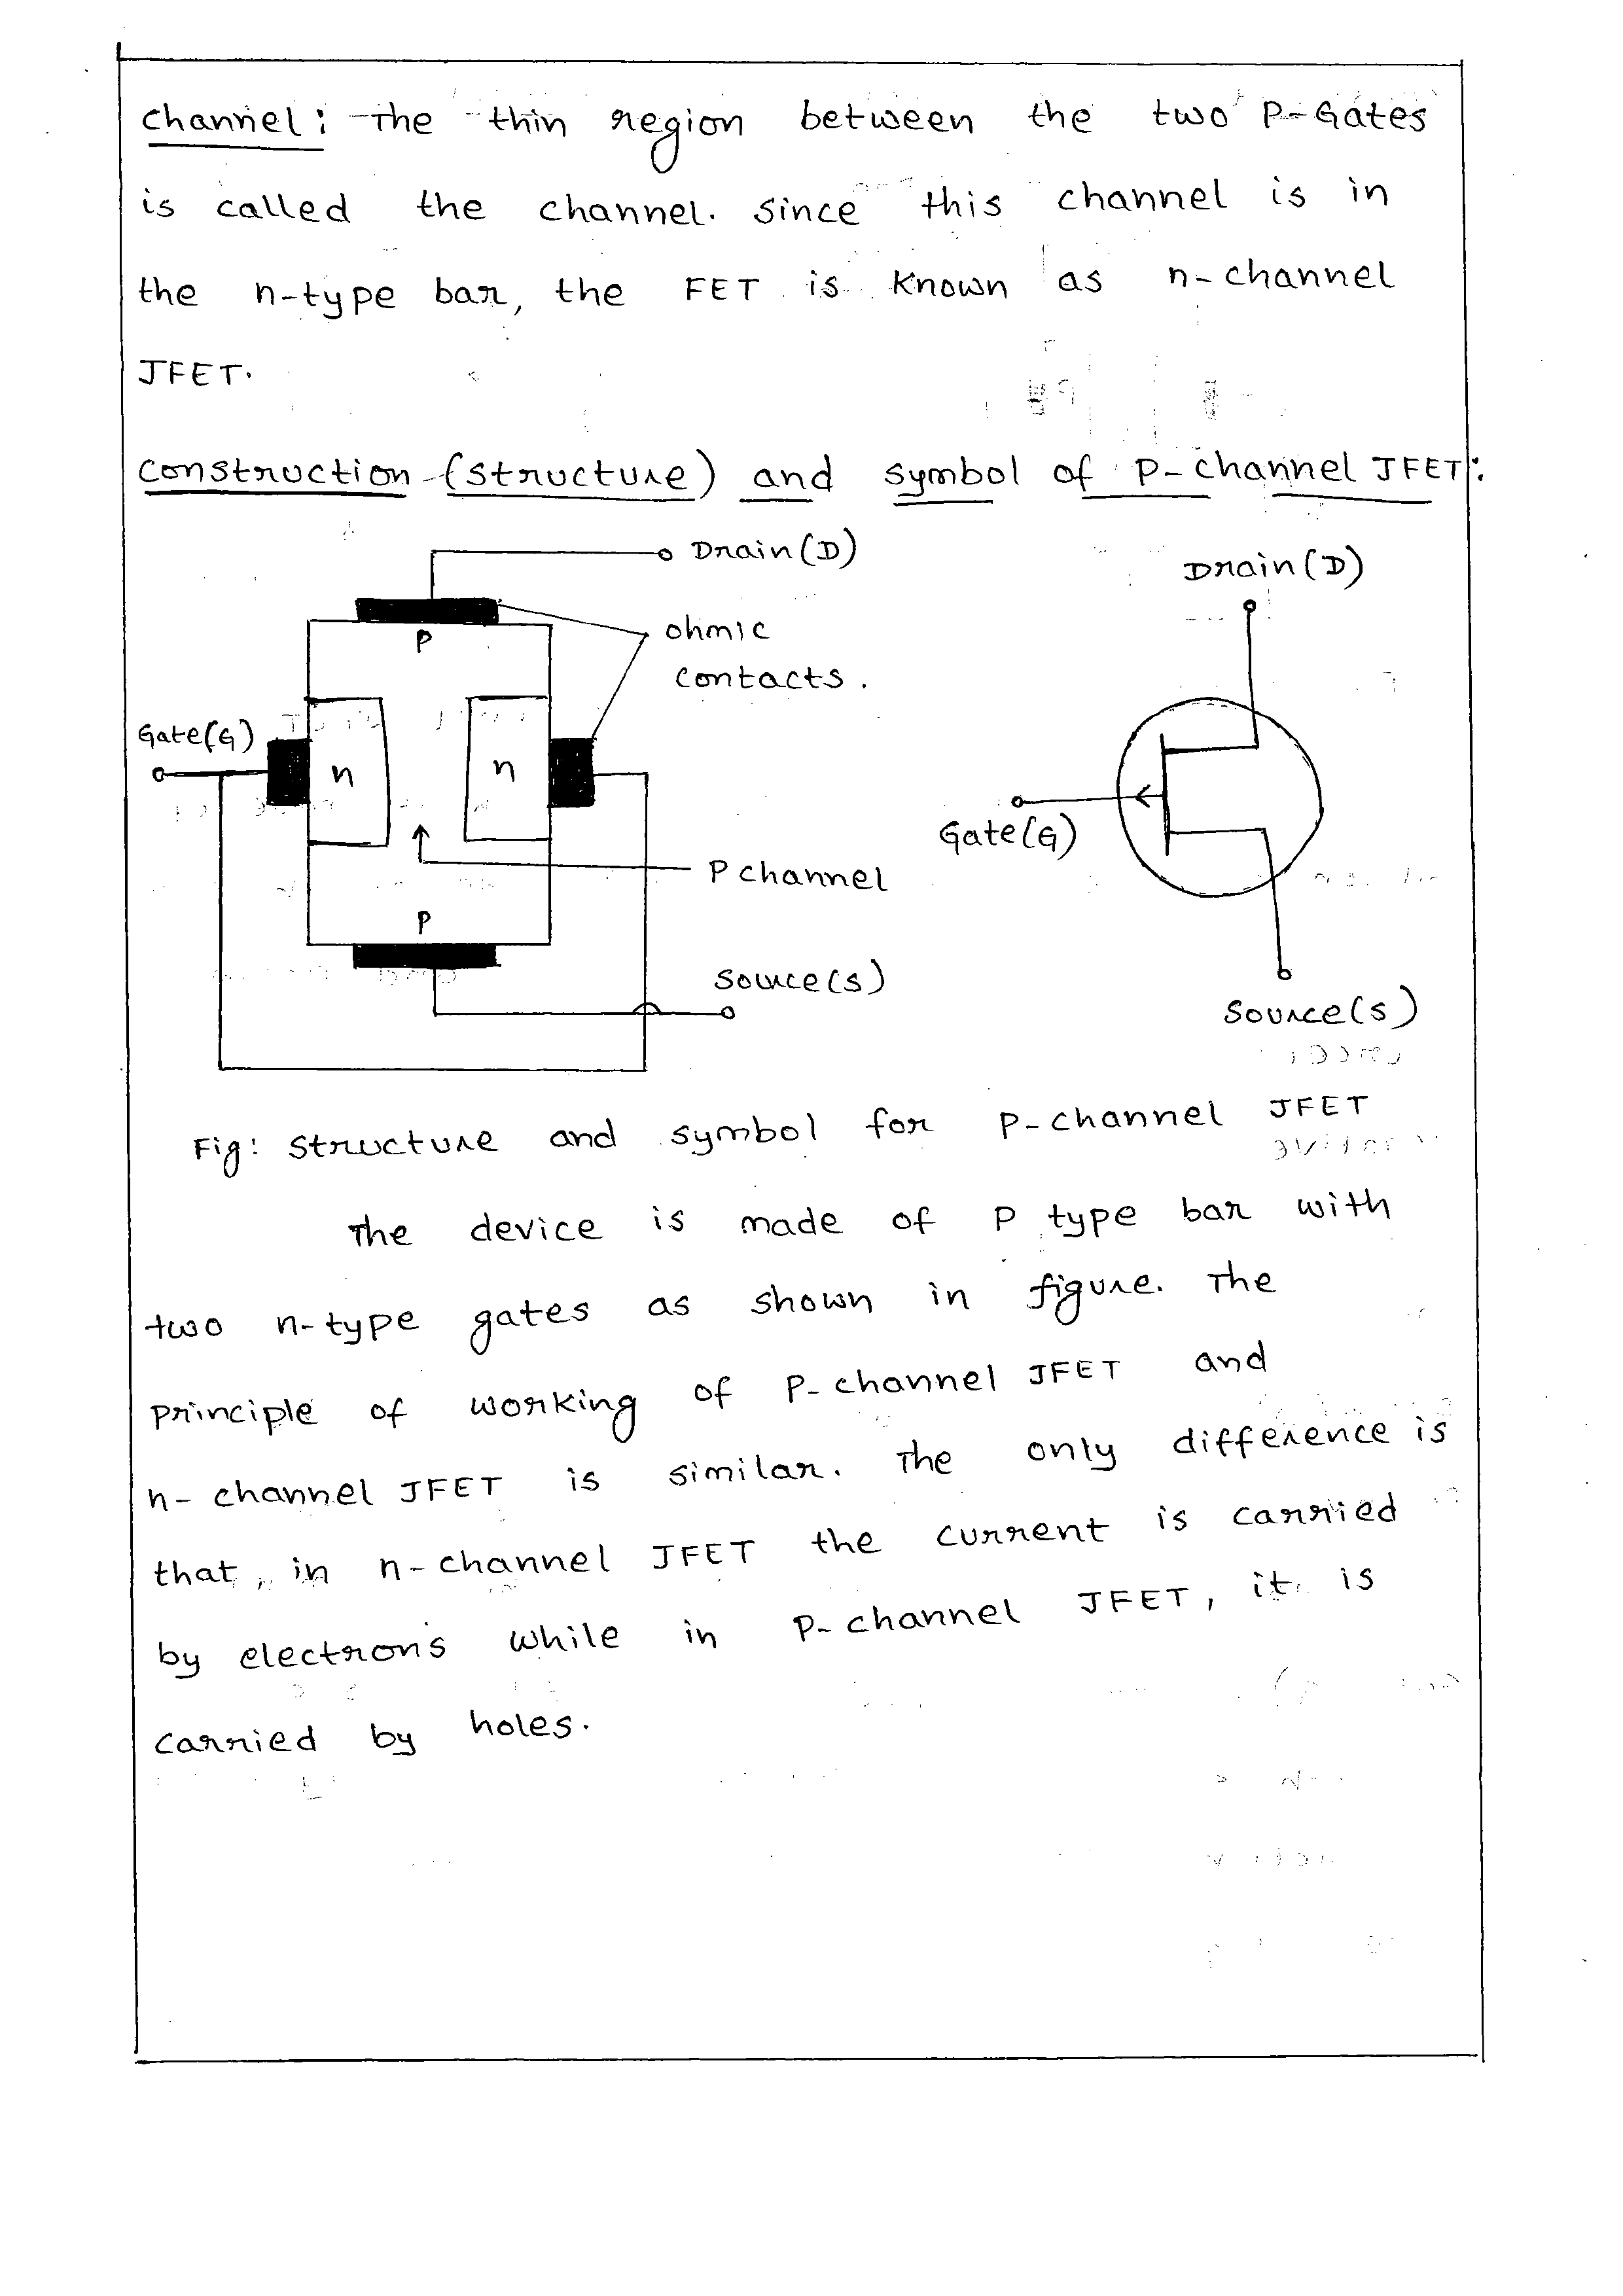 channel: The thin region between the two P-Gates
is called the channel. since this channel is in
the n-type bar, the FET is known as n-channel
JFET.
construction (structure) and symbol of P-channel JFET:
Drain(D)
P
ohmic
contacts.
Gate(G)
n
n
P channel
P
Source(s)
Drain(D)
Gate(G)
Source(s)
Fig: structure and symbol for P-channel JFET
The device is made of P type bar with
two n-type gates as shown in figure. The
principle of working of P-channel JFET and
n-channel JFET is similar. The only difference is
that, in n-channel JFET the current is carried
by electrons while in P-channel JFET, it is
carried by holes.